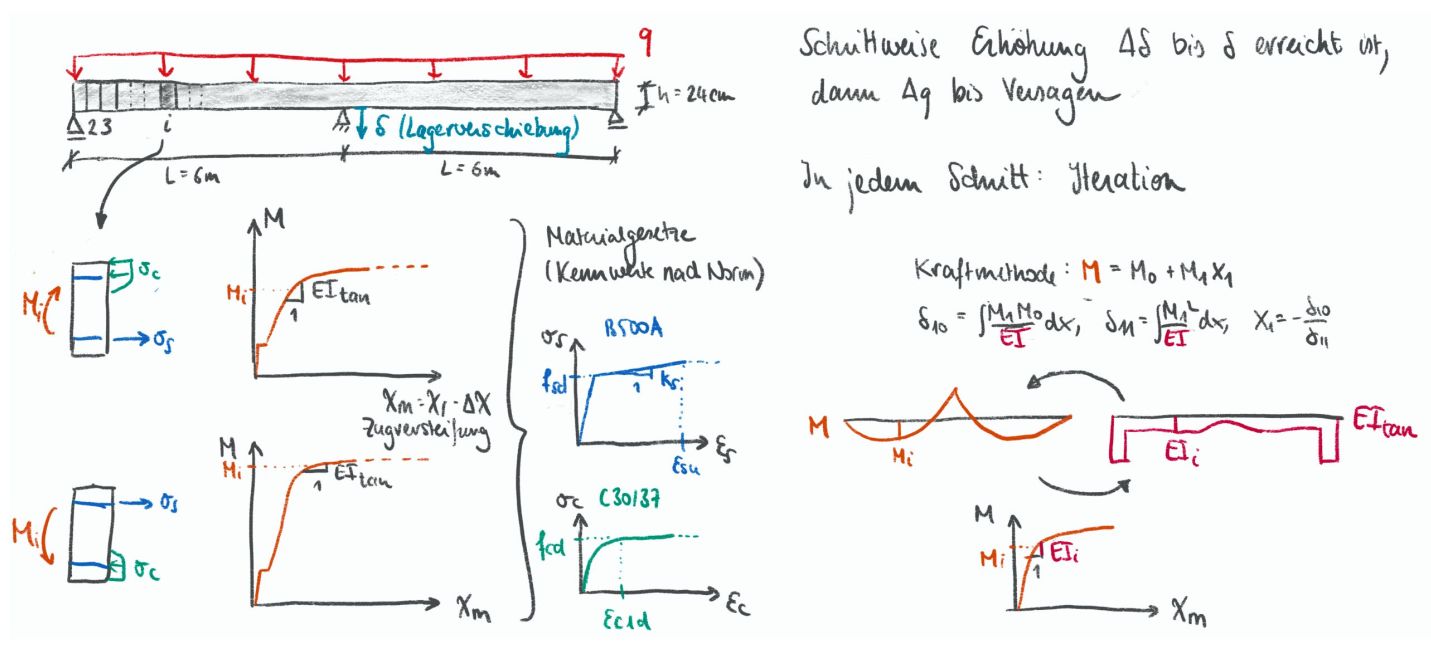 q
h = 24cm
2 3
i
δ (Lagerverschiebung)
L = 6m
L = 6m
Schrittweise Erhöhung Δδ bis δ erreicht ist,
dann Δq bis Versagen
In jedem Schritt: Iteration
Mi
σc
σs
M
Mi
EI tan
1
χm = χr - Δχ
Zugversteifung
Mi
σs
σc
M
Mi
EI tan
1
χm
Materialgesetze
(Kennwerte nach Norm)
B500A
σs
fsd
ks
1
εsu
εs
σc
C30/37
fcd
εc1d
εc
Kraftmethode: M = M0 + M1 X1
δ10 = ∫ M1 M0 / EI dx, δ11 = ∫ M1² / EI dx, X1 = - δ10 / δ11
M
Mi
EI tan
EIi
M
Mi
EIi
1
χm